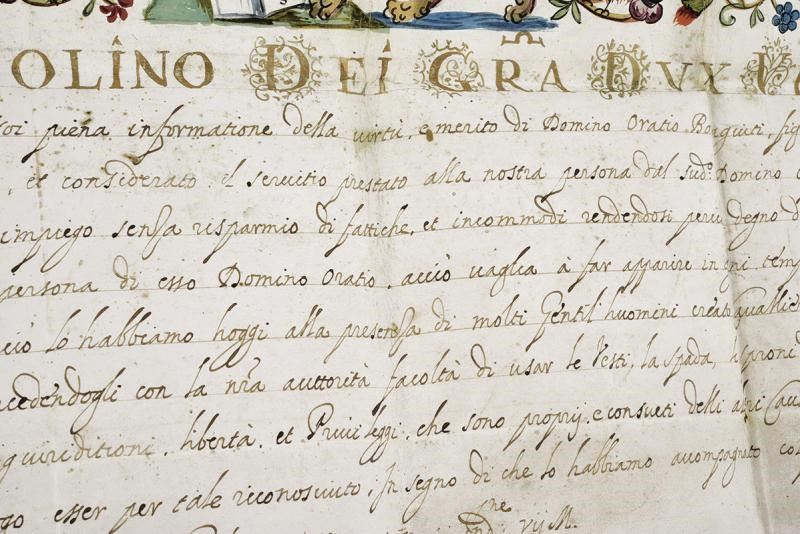 OLINO DEI GRA DVX
piena informatione della virtù, e merito di Domino Oratio
, et considerato il servitio prestato alla nostra persona dal sud.º Domino
impiego senza risparmio di fattiche, et incommodi rendendosi degno
persona di esso Domino Oratio, acciò vaglia à far apparire in
lo habbiamo hoggi alla presenza di molti Gentil'huomini creato Cavallie
cedendogli con la nra auttorità facoltà di usar le Vesti, la spada,
libertà, et Privileggi, che sono proprij, e consueti delli altri Cau
esser per tale riconosciuto. In segno di che lo habbiamo